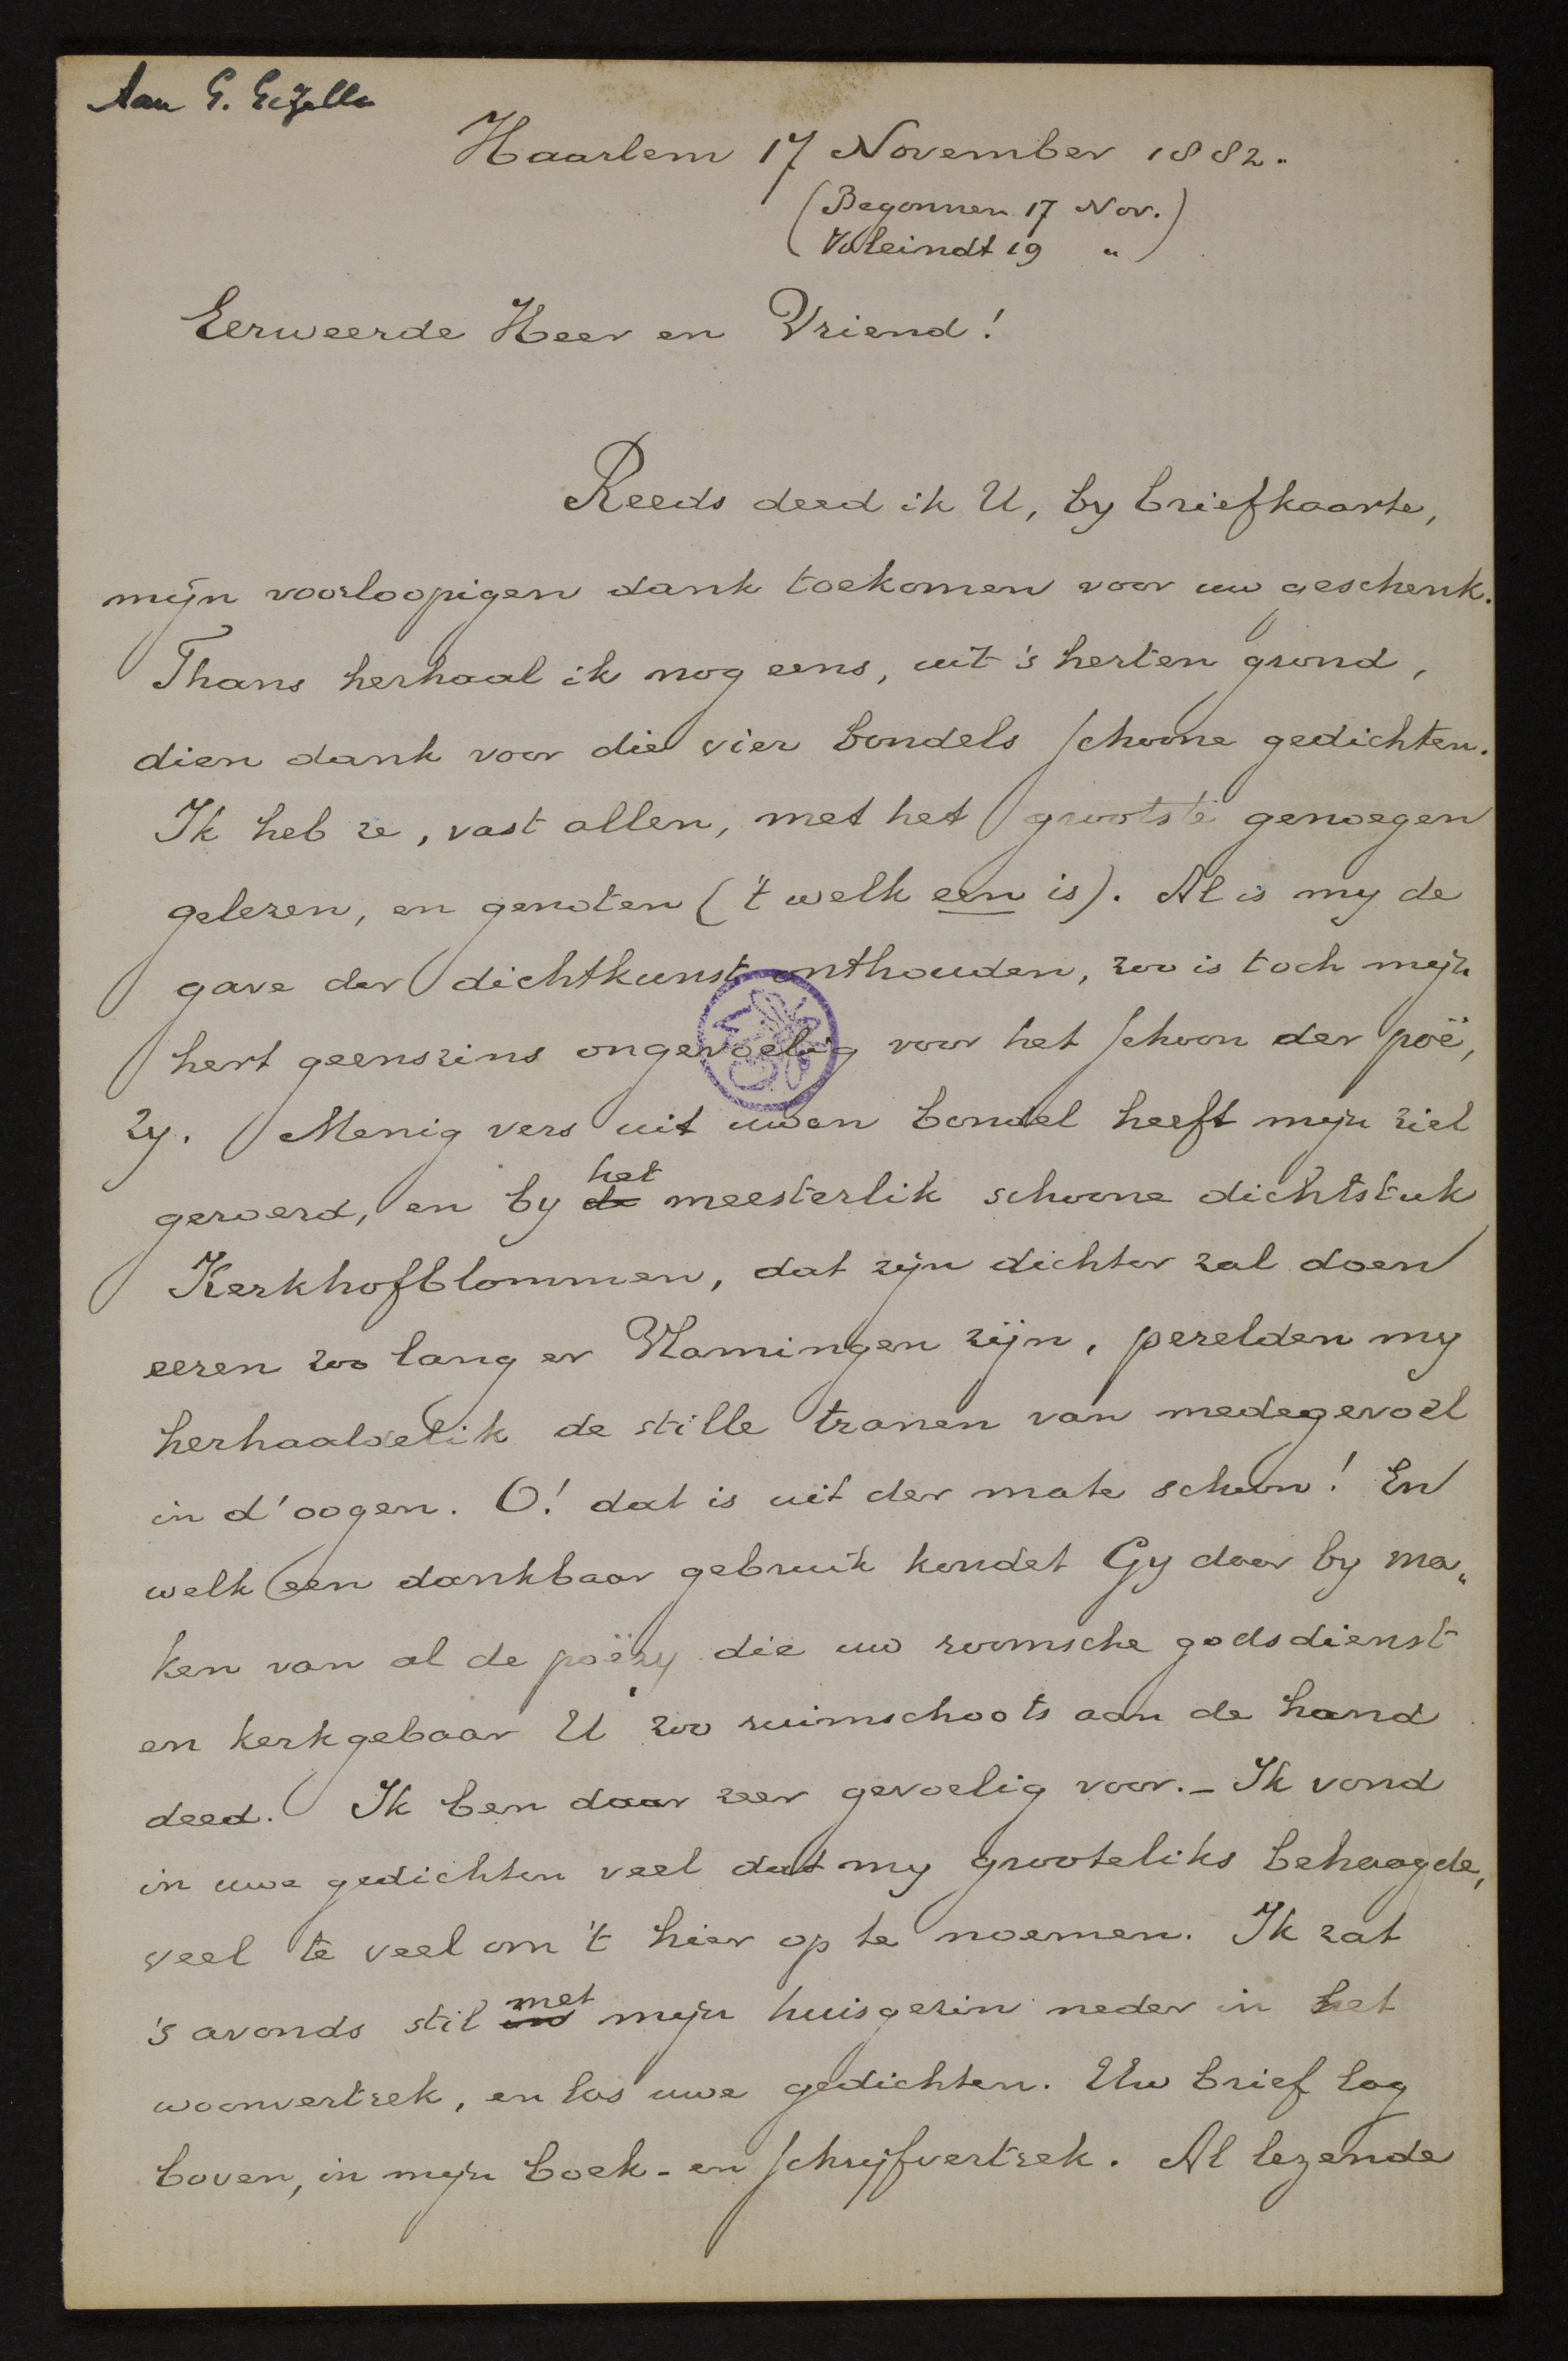 Aan G. Gezelle
Haarlem 17 November 1882.
(Begonnen 17 Nov.)
(Voleindt 19 „)
Eerweerde Heer en Vriend!
Reeds deed ik U, by briefkaarte,
mijn voorloopigen dank toekomen voor uw geschenk.
Thans herhaal ik nog eens, uit 's herten grond,
dien dank voor die vier bondels schoone gedichten.
Ik heb ze, vast allen, met het grootste genoegen
gelezen, en genoten ('t welk een is). Al is my de
gave der dichtkunst onthouden, zoo is toch mijn
hert geenszins ongevoelig voor het schoon der poë,
zy. Menig vers uit uwen bondel heeft mijn ziel
geroerd, en by de het meesterlik schoone dichtstuk
Kerkhofblommen, dat zijn dichter zal doen
eeren zoo lang er Vlamingen zijn, perelden my
herhaaldelik de stille tranen van medegevoel
in d'oogen. O! dat is uit der mate schoon! En
welk een dankbaar gebruik kondet Gy daar by ma„
ken van al de poëzy die uw roomsche godsdienst
en kerkgebaar U zoo ruimschoots aan de hand
deed. Ik ben daar zeer gevoelig voor.- Ik vond
in uwe gedichten veel dat my grooteliks behaagde,
veel te veel om 't hier op te noemen. Ik zat
's avonds stil in met mijn huisgezin neder in het
woonvertrek, en las uwe gedichten. Uw brief lag
boven, in mijn boek- en schrijfvertrek. Al lezende